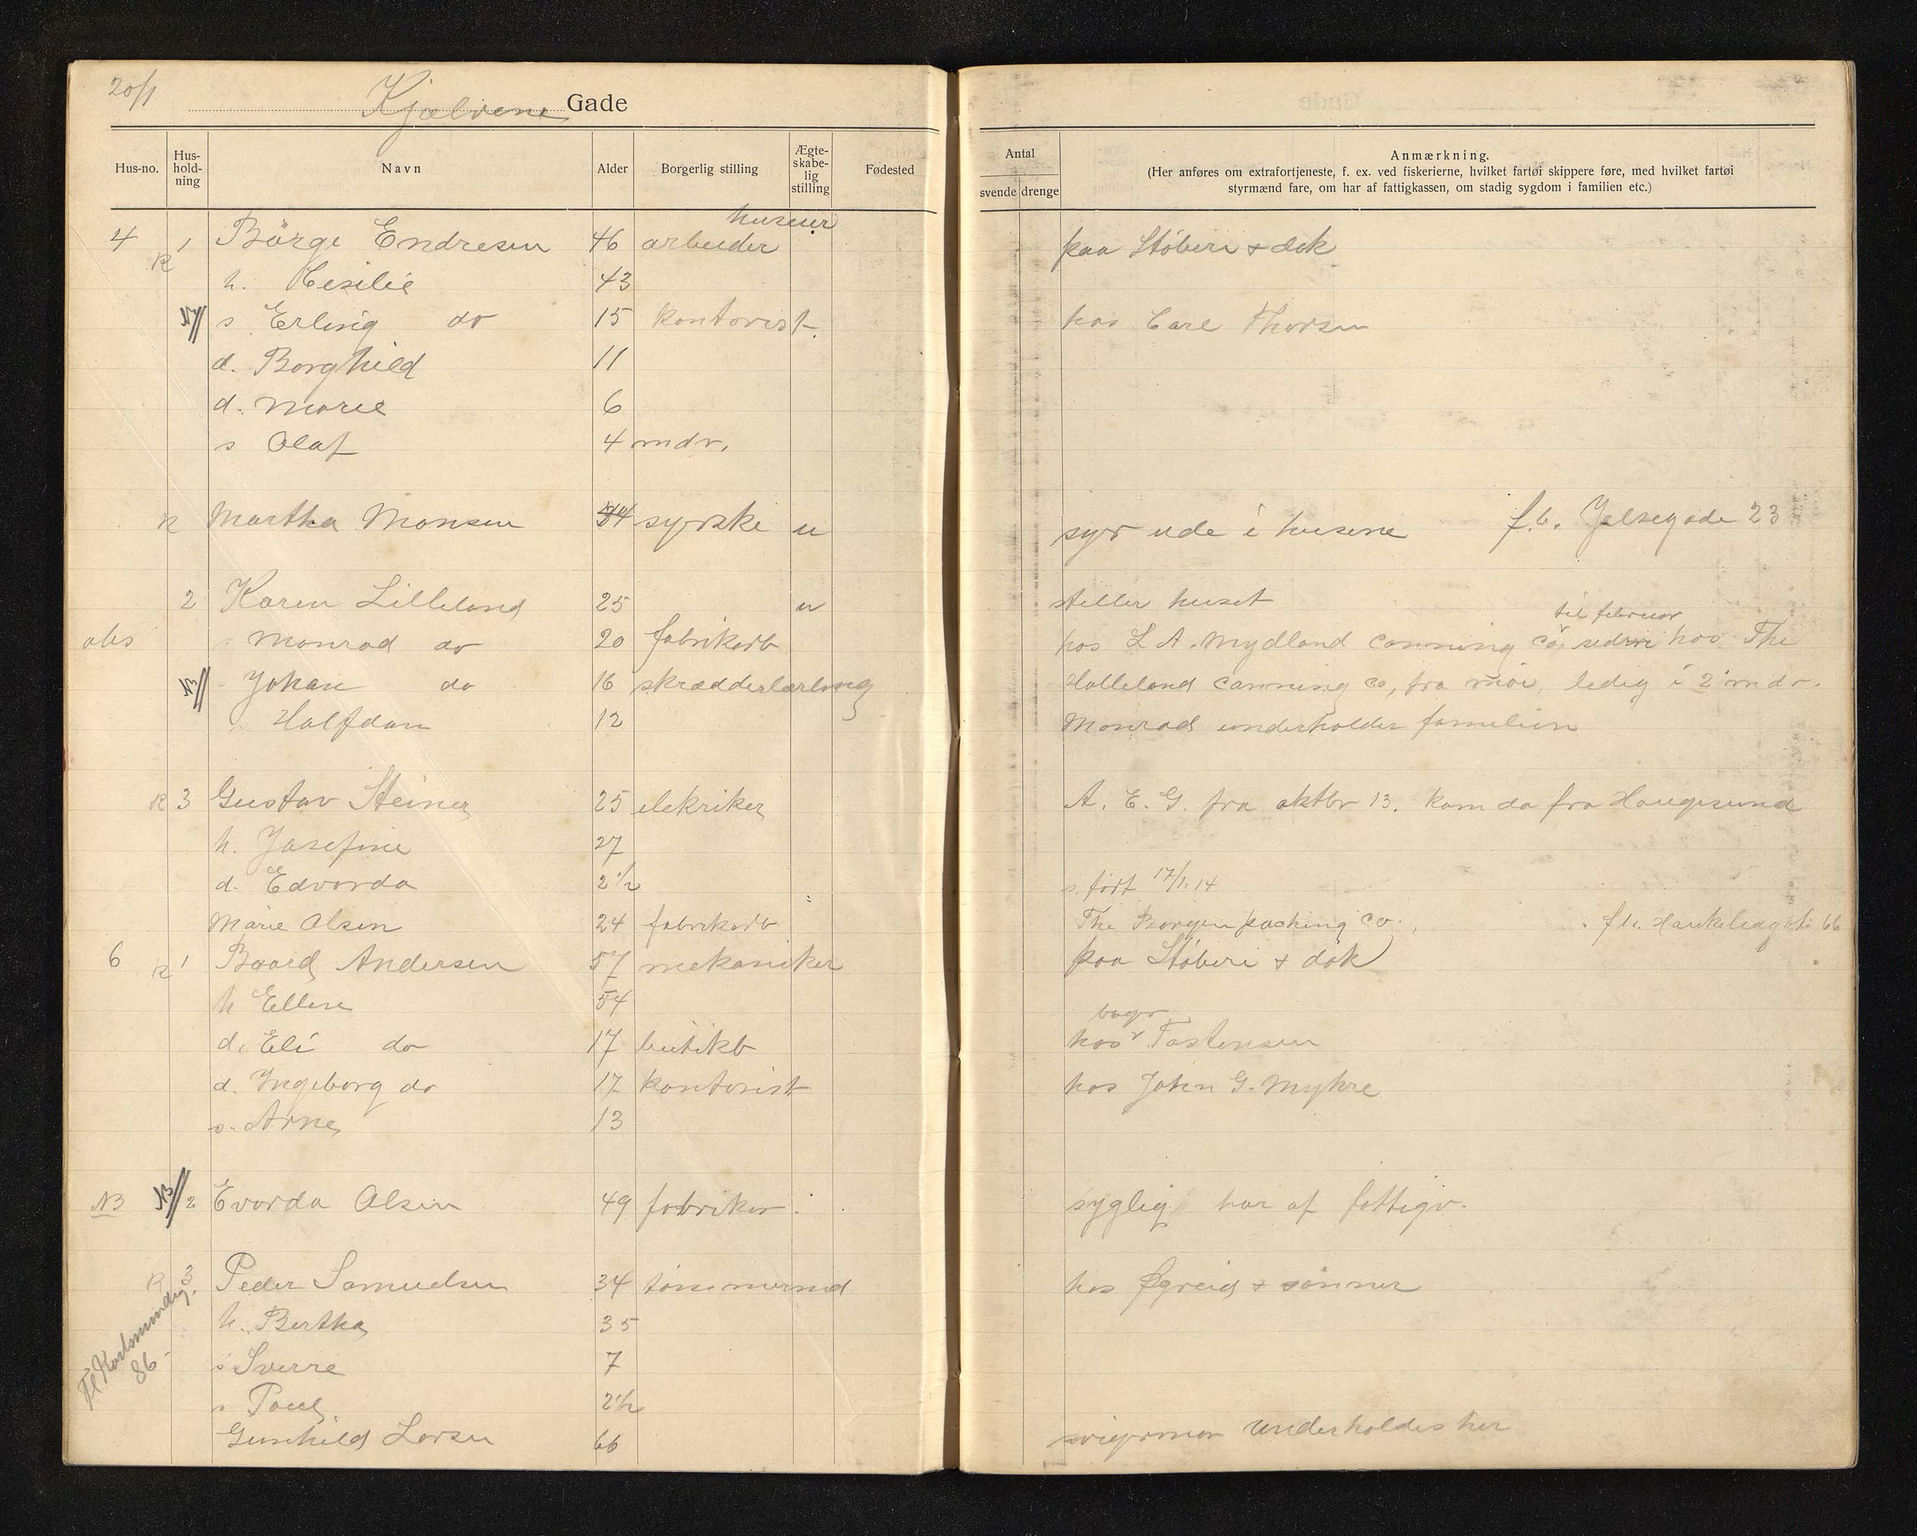 20/1
Kjælvene Gade
Hus-no. Hus-hold-ning Navn Alder Borgerlig stilling Ægte-skabe-lig stilling Fødested
Antal svende drenge
Anmærkning.
(Her anføres om extrafortjeneste, f. ex. ved fiskerierne, hvilket fartøi skippere føre, med hvilket fartøi
styrmænd fare, om har af fattigkassen, om stadig sygdom i familien etc.)
huseier
4 R 1 Børge Endresen 46 arbeider paa Støberi + dok
h. Cesilie 43
NB // s Erling do 15 kontorist hos Carl Thorsen
d. Borghild 11
d. Marie 6
s Olaf 4 mdr.
R Martha Monsen sypske u syr ude i husene f.b. Jelsegade 23
2 Karen Lilleland 25 u steller huset
til februar
obs Monrad do 20 fabrikarb hos L A. Mydland Canning Co, hos The
NB // Johan do 16 skrædderlærling Halleland Canning Co, fra mdr, ledig i 2 mdr.
Halfdan 12 Monrad underholder familien
R 3 Gustav Steiner 25 elekriker A. E. G. fra oktbr 13. kom da fra Haugesund
h. Josefine 27
d. Edvarda 2 1/2 s. født 17/1. 14
Marie Olsen 24 fabrikarb The Borgen packing Co. f.b. Haukeligt. 66
6 R 1 Baard Andersen 57 mekaniker paa Støberi + dok
h Ellen 54
bager
d. Eli do 17 butikb hos Tastensen
d. Ingeborg do 17 kontorist hos John G. Myhre
s. Arne 13
NB NB // 2 Evarda Olsen 49 fabrikar. syglig har af fattigv.
R 3 Peder Samuelsen 34 tømmermd hos Øgreid + sønner
h. Bertha 35
s Sverre 7
s Paul 2 1/2
Gunhild Larsen 66 svigermor underholdes her
Til Karlsmindeg. 86